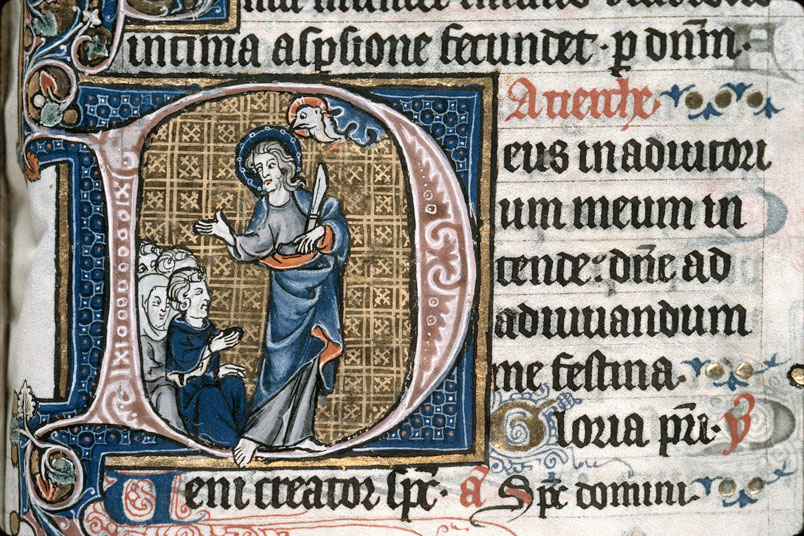 intima aspsione fecundet · p dnm̄·
A tierche
eus in adiutori
um meum in
tende· dn̄e ad
adiuuandum
me festina·
Gloria pr̄i· V̸
Veni creator sp̄c· a
Sp̄c domini·